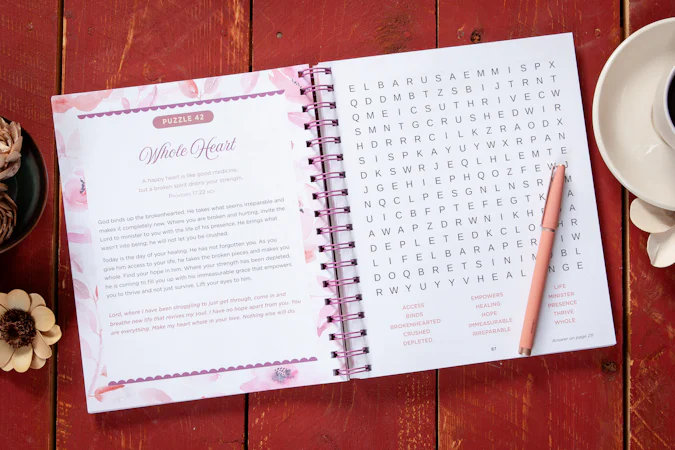 PUZZLE 42
Whole Heart
A happy heart is like good medicine,
but a broken spirit drains your strength.
Proverbs 17:22
God binds up the brokenhearted. He takes what seems irreparable and
makes it completely new. Where you are broken and hurting, invite the
Lord to minister to you with the life of his presence. He brings what
wasn't into being; he will not let you be crushed.
Today is the day of your healing. He has not forgotten you. As you
give him access to your life, he takes the broken pieces and makes you
whole. Find your hope in him. Where your strength has been depleted,
he is coming to fill you up with his immeasurable grace that empowers
you to thrive and not just survive. Lift your eyes to him.
Lord, where I have been struggling to just get through, come in and
breathe new life that revives my soul. I have no hope apart from you. You
are everything. Make my heart whole in your love. Nothing else will do.
E L B A R U S A E M M I S P X
Q D D M B T Z S B I J T R N T
Q M E I C S U T H R I V E C W
S M N T G C R U S H E D W I R
H D R R R C I L K Z R A O D X
S I S P K A Y U Y W X R P A N
D K S W R J E Q L H L E M T E
J G E H I E P H Q O Z F E W
N Q C L P E S G N L N S R A
U I C B F P T E F E G T K M
A W A P Z D R W N I K H A
D E P L E T E D K C L O H
L I F E L B A R A P E R I W
D O Q B R E T S I N I M L
R W Y U Y Y V H E A L I N G E
ACCESS
BINDS
BROKENHEARTED
CRUSHED
DEPLETED
EMPOWERS
HEALING
HOPE
IMMEASURABLE
IRREPARABLE
LIFE
MINISTER
PRESENCE
THRIVE
WHOLE
Answer on page